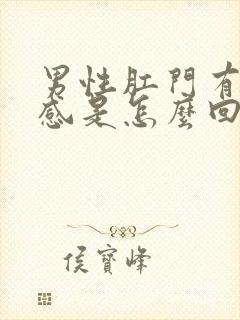 男性肛門有
感是怎麼回
侯寶峰